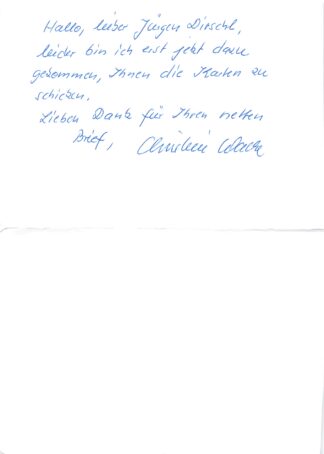 Hallo, lieber Jürgen Dirschl,
leider bin ich erst jetzt dazu
gekommen, Ihnen die Karten zu
schicken.
Lieben Dank für Ihren netten
Brief, Christine